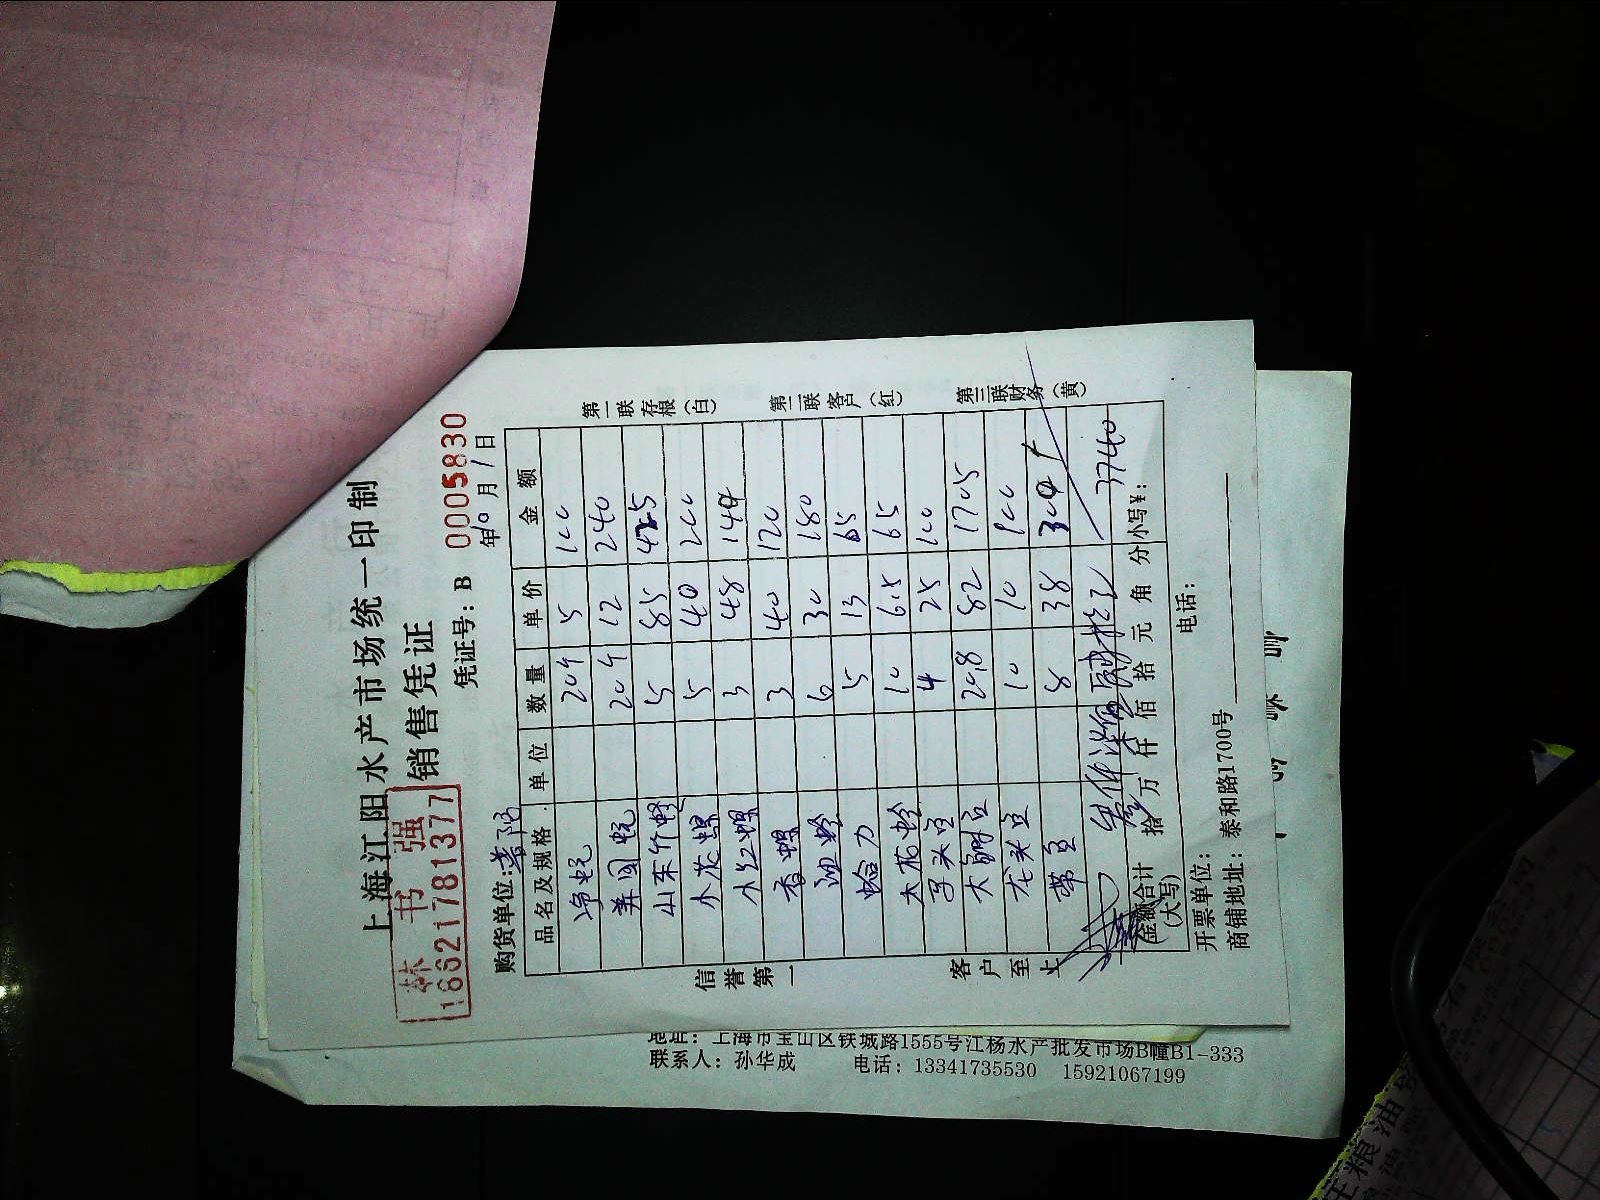 上海江阳水产市场统一印制
林书强
16621781377
销售凭证
凭证号：B 0005830
购货单位:
年10月1日
品名及规格 单位 数量 单价 金额
净蚝 20个 5 100
美国蚝 20个 12 240
山东竹蛏 5 85 425
水花螺 5 40 200
水红螺 3 48 144
香螺 3 40 120
油蛤 6 30 180
蛤力 5 13 65
大花蛤 10 6.5 65
子头豆 4 25 100
大鲜豆 20.8 82 1705
龙头豆 10 10 100
带豆 8 38 304
金额合计
(大写)
拾 万 仟 佰 拾 元 角 分 小写¥: 3740
第一联存根(白)
第二联客户(红)
第三联财务(黄)
信誉第一
客户至上
开票单位:
电话:
商铺地址: 泰和路1700号
地址: 上海市宝山区铁城路1555号江杨水产批发市场B幢B1-333
联系人: 孙华成 电话: 13341735530 15921067199
粮油